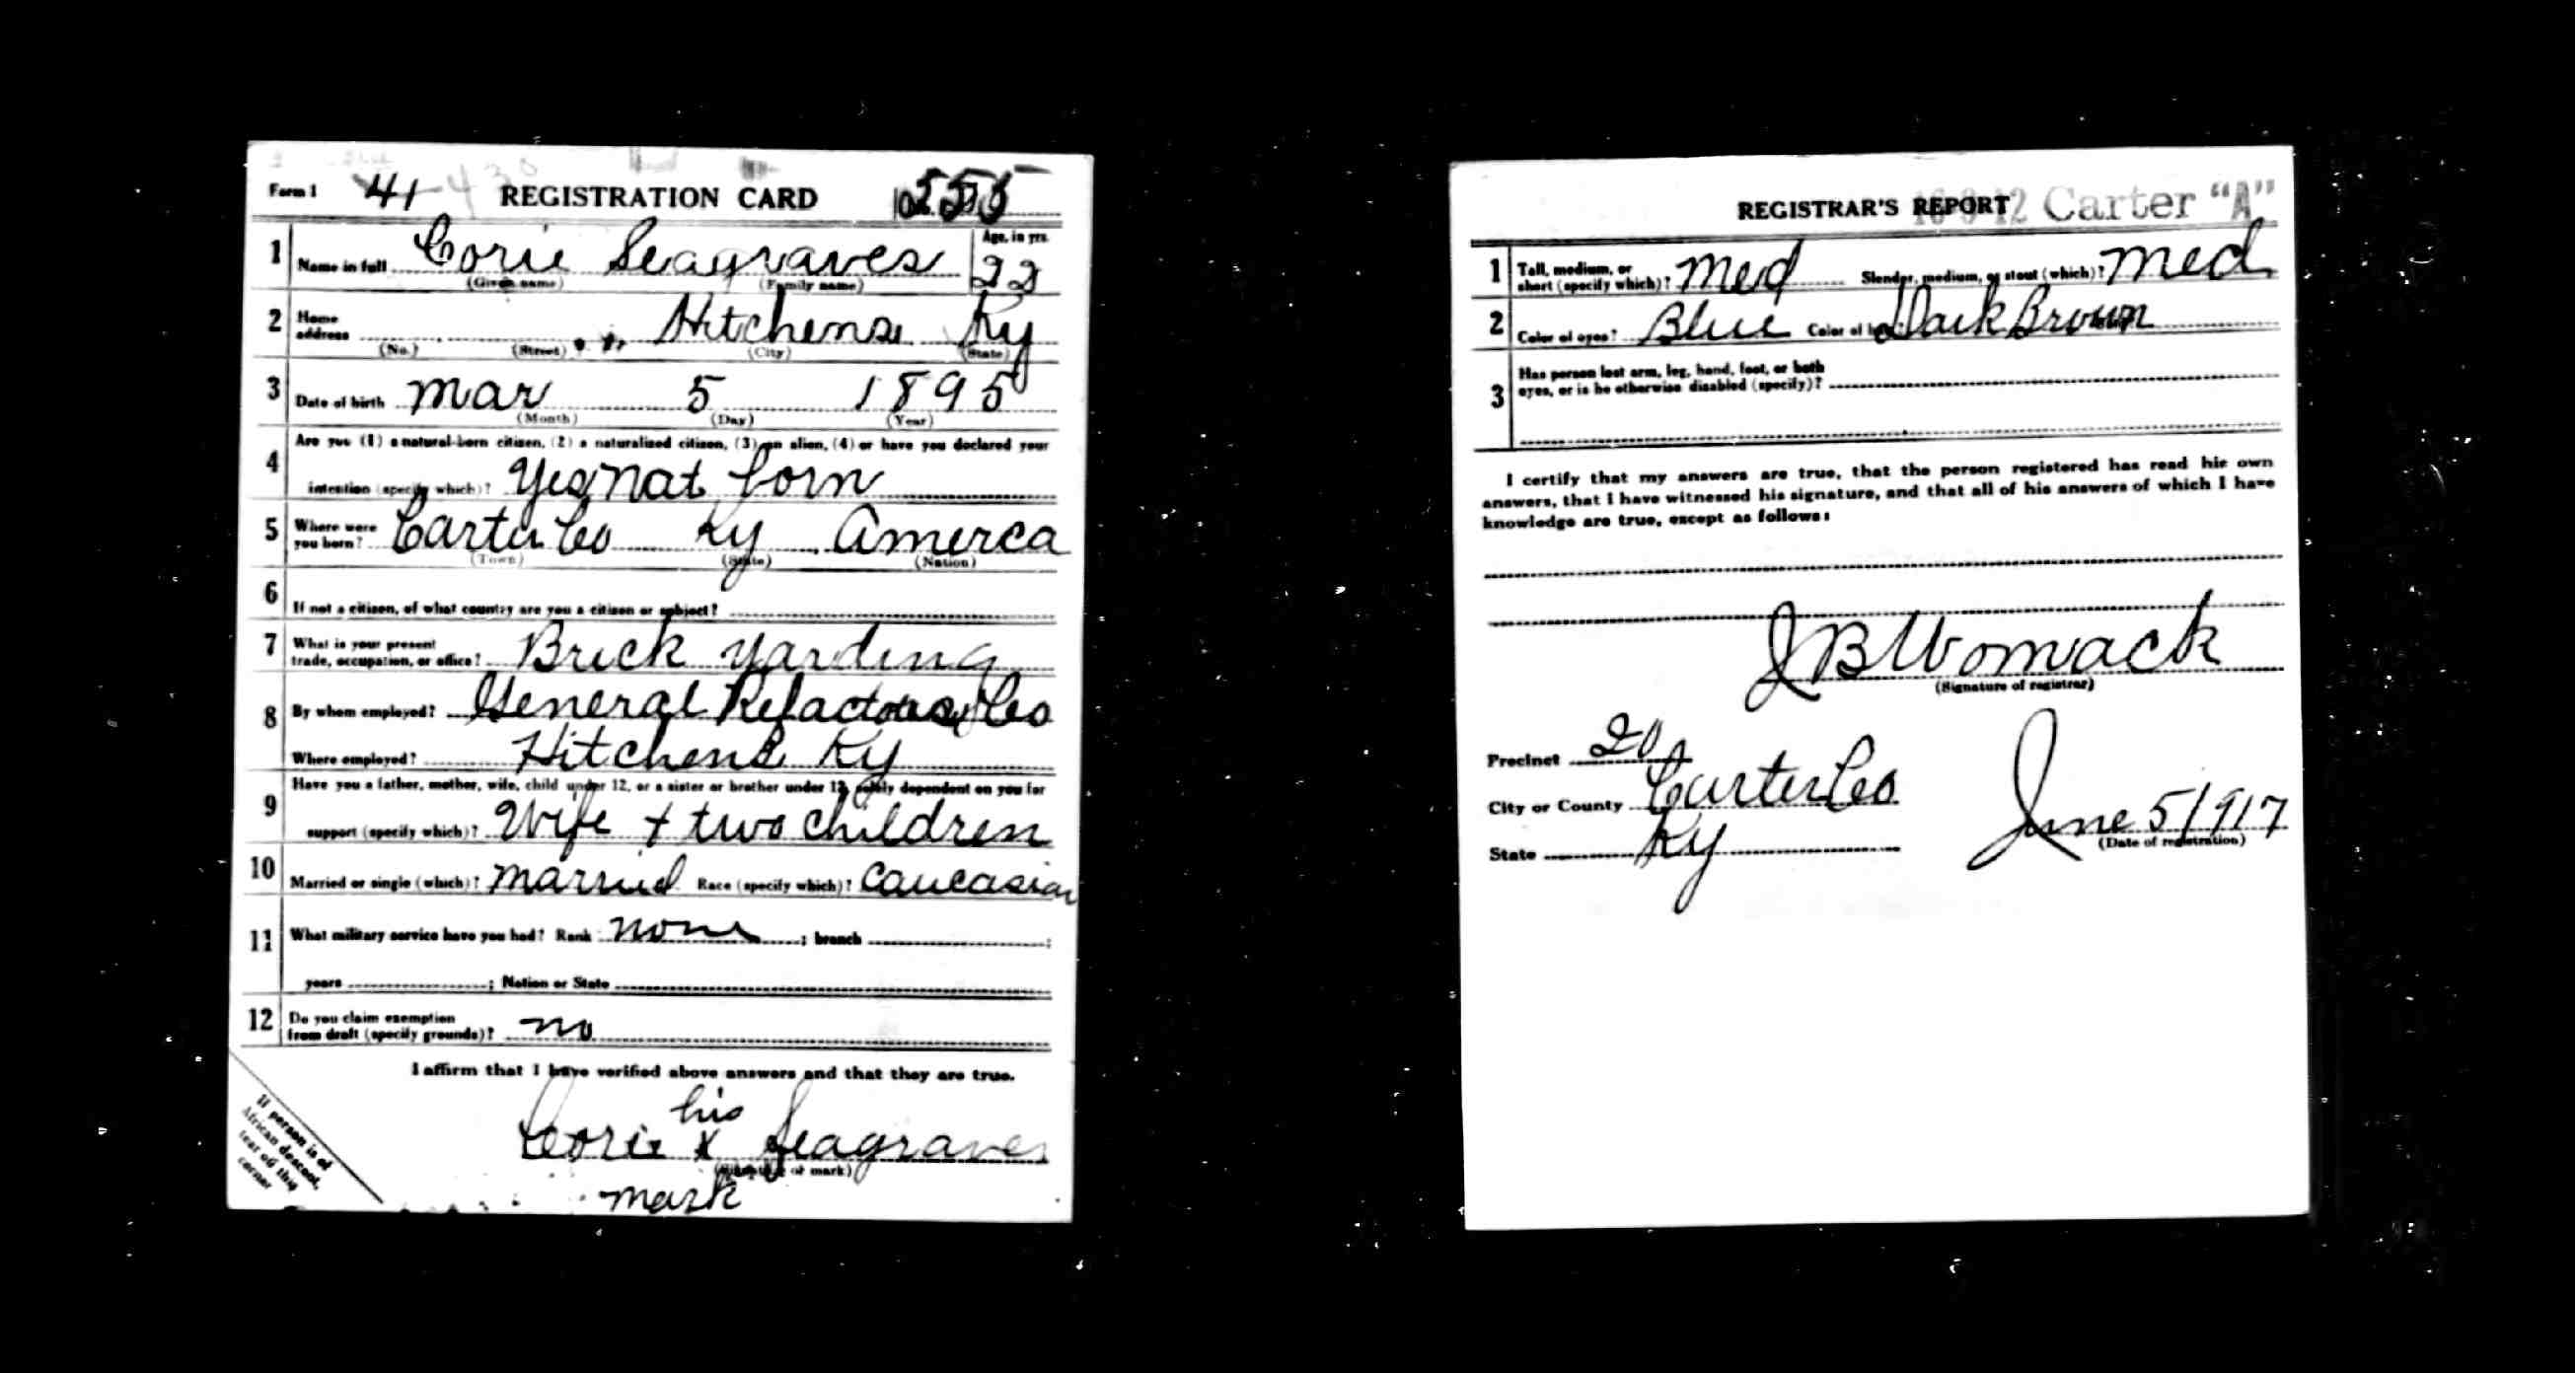 Form 1 41 REGISTRATION CARD
1 Name in full Corie Seagraves Age, in yrs. 22
(Given name) (Family name)
2 Home address Hitchens Ky
(No.) (Street) (City) (State)
3 Date of birth Mar 5 1895
(Month) (Day) (Year)
4 Are you (1) a natural-born citizen, (2) a naturalized citizen, (3) an alien, (4) or have you declared your
intention (specify which)? Yes Nat born
5 Where were you born? Carter Co Ky Amerca
(Town) (State) (Nation)
6 If not a citizen, of what country are you a citizen or subject?
7 What is your present trade, occupation, or office? Brick yarding
8 By whom employed? General Refactories Co
Where employed? Hitchens Ky
9 Have you a father, mother, wife, child under 12, or a sister or brother under 12, solely dependent on you for
support (specify which)? Wife + two children
10 Married or single (which)? Married Race (specify which)? Caucasian
11 What military service have you had? Rank none ; branch ;
years ; Nation or State
12 Do you claim exemption from draft (specify grounds)? no
I affirm that I have verified above answers and that they are true.
his
Corie x Seagraves
(Signature or mark)
mark
If person is of
African descent,
tear off this
corner
REGISTRAR'S REPORT Carter "A"
1 Tall, medium, or short (specify which)? Med Slender, medium, or stout (which)? Med
2 Color of eyes? Blue Color of hair? Dark Brown
3 Has person lost arm, leg, hand, foot, or both
eyes, or is he otherwise disabled (specify)?
I certify that my answers are true, that the person registered has read his own
answers, that I have witnessed his signature, and that all of his answers of which I have
knowledge are true, except as follows:
J B Womack
(Signature of registrar)
Precinct 20
City or County Carter Co
State Ky June 5 1917
(Date of registration)